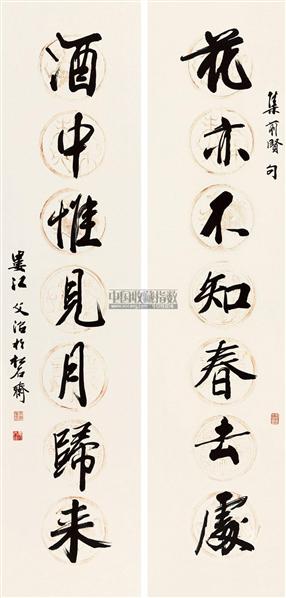 集前賢句
花亦不知春去處
酒中惟見月歸来
婁江父治於松石齋
中国收藏指数